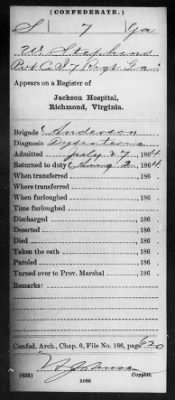 (CONFEDERATE.)
S 7 Ga
W Stephens
Pvt Co I 7 Regt Ga
Appears on a Register of
Jackson Hospital,
Richmond, Virginia.
Brigade Anderson
Diagnosis Dysenteria
Admitted July 27, 1864
Returned to duty Aug 2, 1864
When transferred , 186
Where transferred
When furloughed , 186
Time furloughed
Discharged , 186
Deserted , 186
Died , 186
Took the oath , 186
Paroled , 186
Turned over to Prov. Marshal , 186
Remarks:
Confed. Arch., Chap. 6, File No. 186, page 620
Copyist.